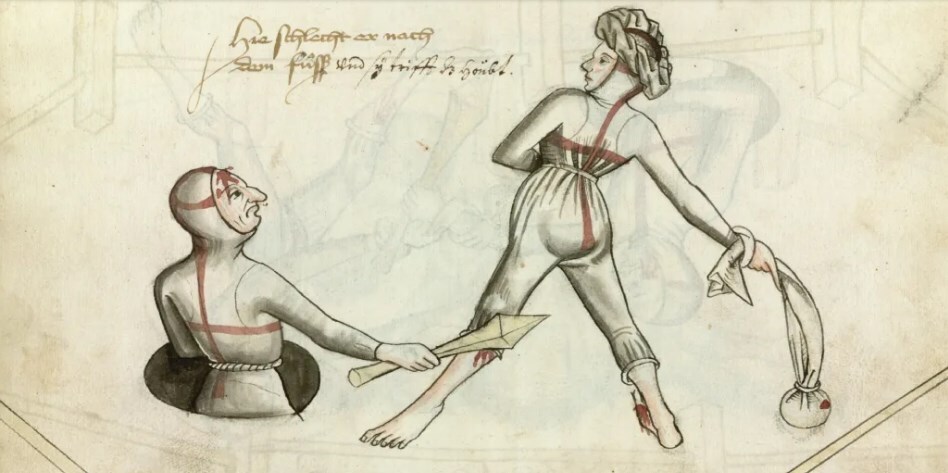 Hie schlecht er nach
dem fůsß vnd sy trifft dz höubt.